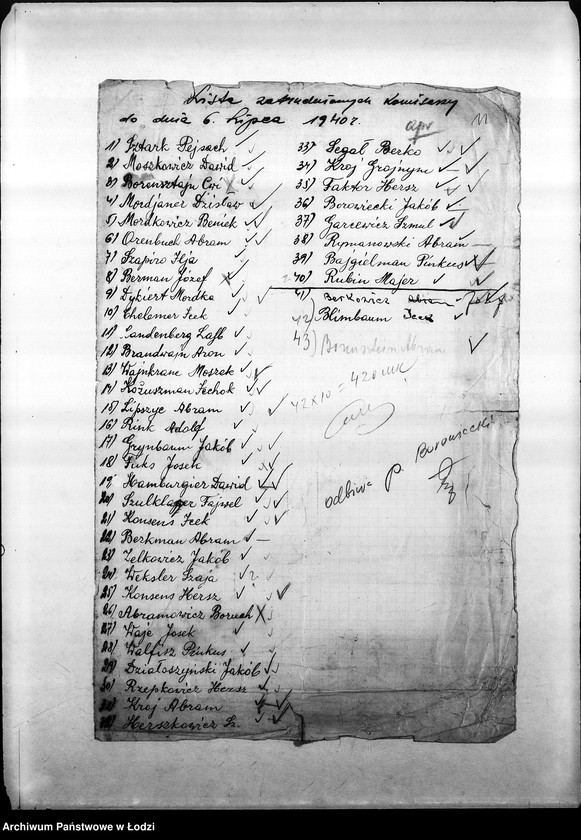 Lista zatrudnionych Komisarzy
do dnia 6. Lipca 1940 r.
1) Sztark Pejsach
2) Moszkowicz Dawid
3) Borensztajn Cwi
4) Mordjaner Dzisław
5) Mordkowicz Beniek
6) Orenbuch Abram
7) Szapiro Ilja
8) Berman Józef
9) Dykiert Mordka
10) Chelemer Icek
11) Landenberg Lajb
12) Brandwajn Aron
13) Wajnkranc Moszek
14) Kożuszman Jechok
15) Lipszyc Abram
16) Rink Adolf
17) Grynbaum Jakób
18) Fuks Josek
19) Hamburgier Dawid
20) Szulklaper Fajwel
21) Konsens Icek
22) Berkman Abram
23) Zelkowicz Jakób
24) Weksler Szaja
25) Konsens Hersz
26) Abramowicz Boruch
27) Waje Josek
28) Walfisz Pinkus
29) Działoszyński Jakób
30) Rzepkowicz Hersz
31) Kroj Abram
32) Herszkowicz Sz.
33) Segał Berko
34) Kroj Grojnym
35) Faktor Hersz
36) Borowiecki Jakób
37) Garcewicz Szmul
38) Rymanowski Abram
39) Bajgielman Pinkus
40) Rubin Majer
41) Berkowicz Abram
42) Blimbaum Icek
43) Borensztein Abram
42 x 10 = 420 mk
odbiera p. Borowiecki
Archiwum Państwowe w Łodzi